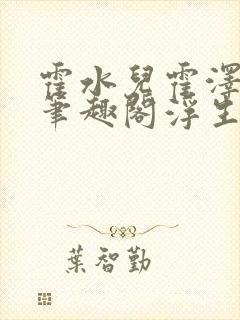 霍水兒霍澤
筆趣閣浮生
葉智勤